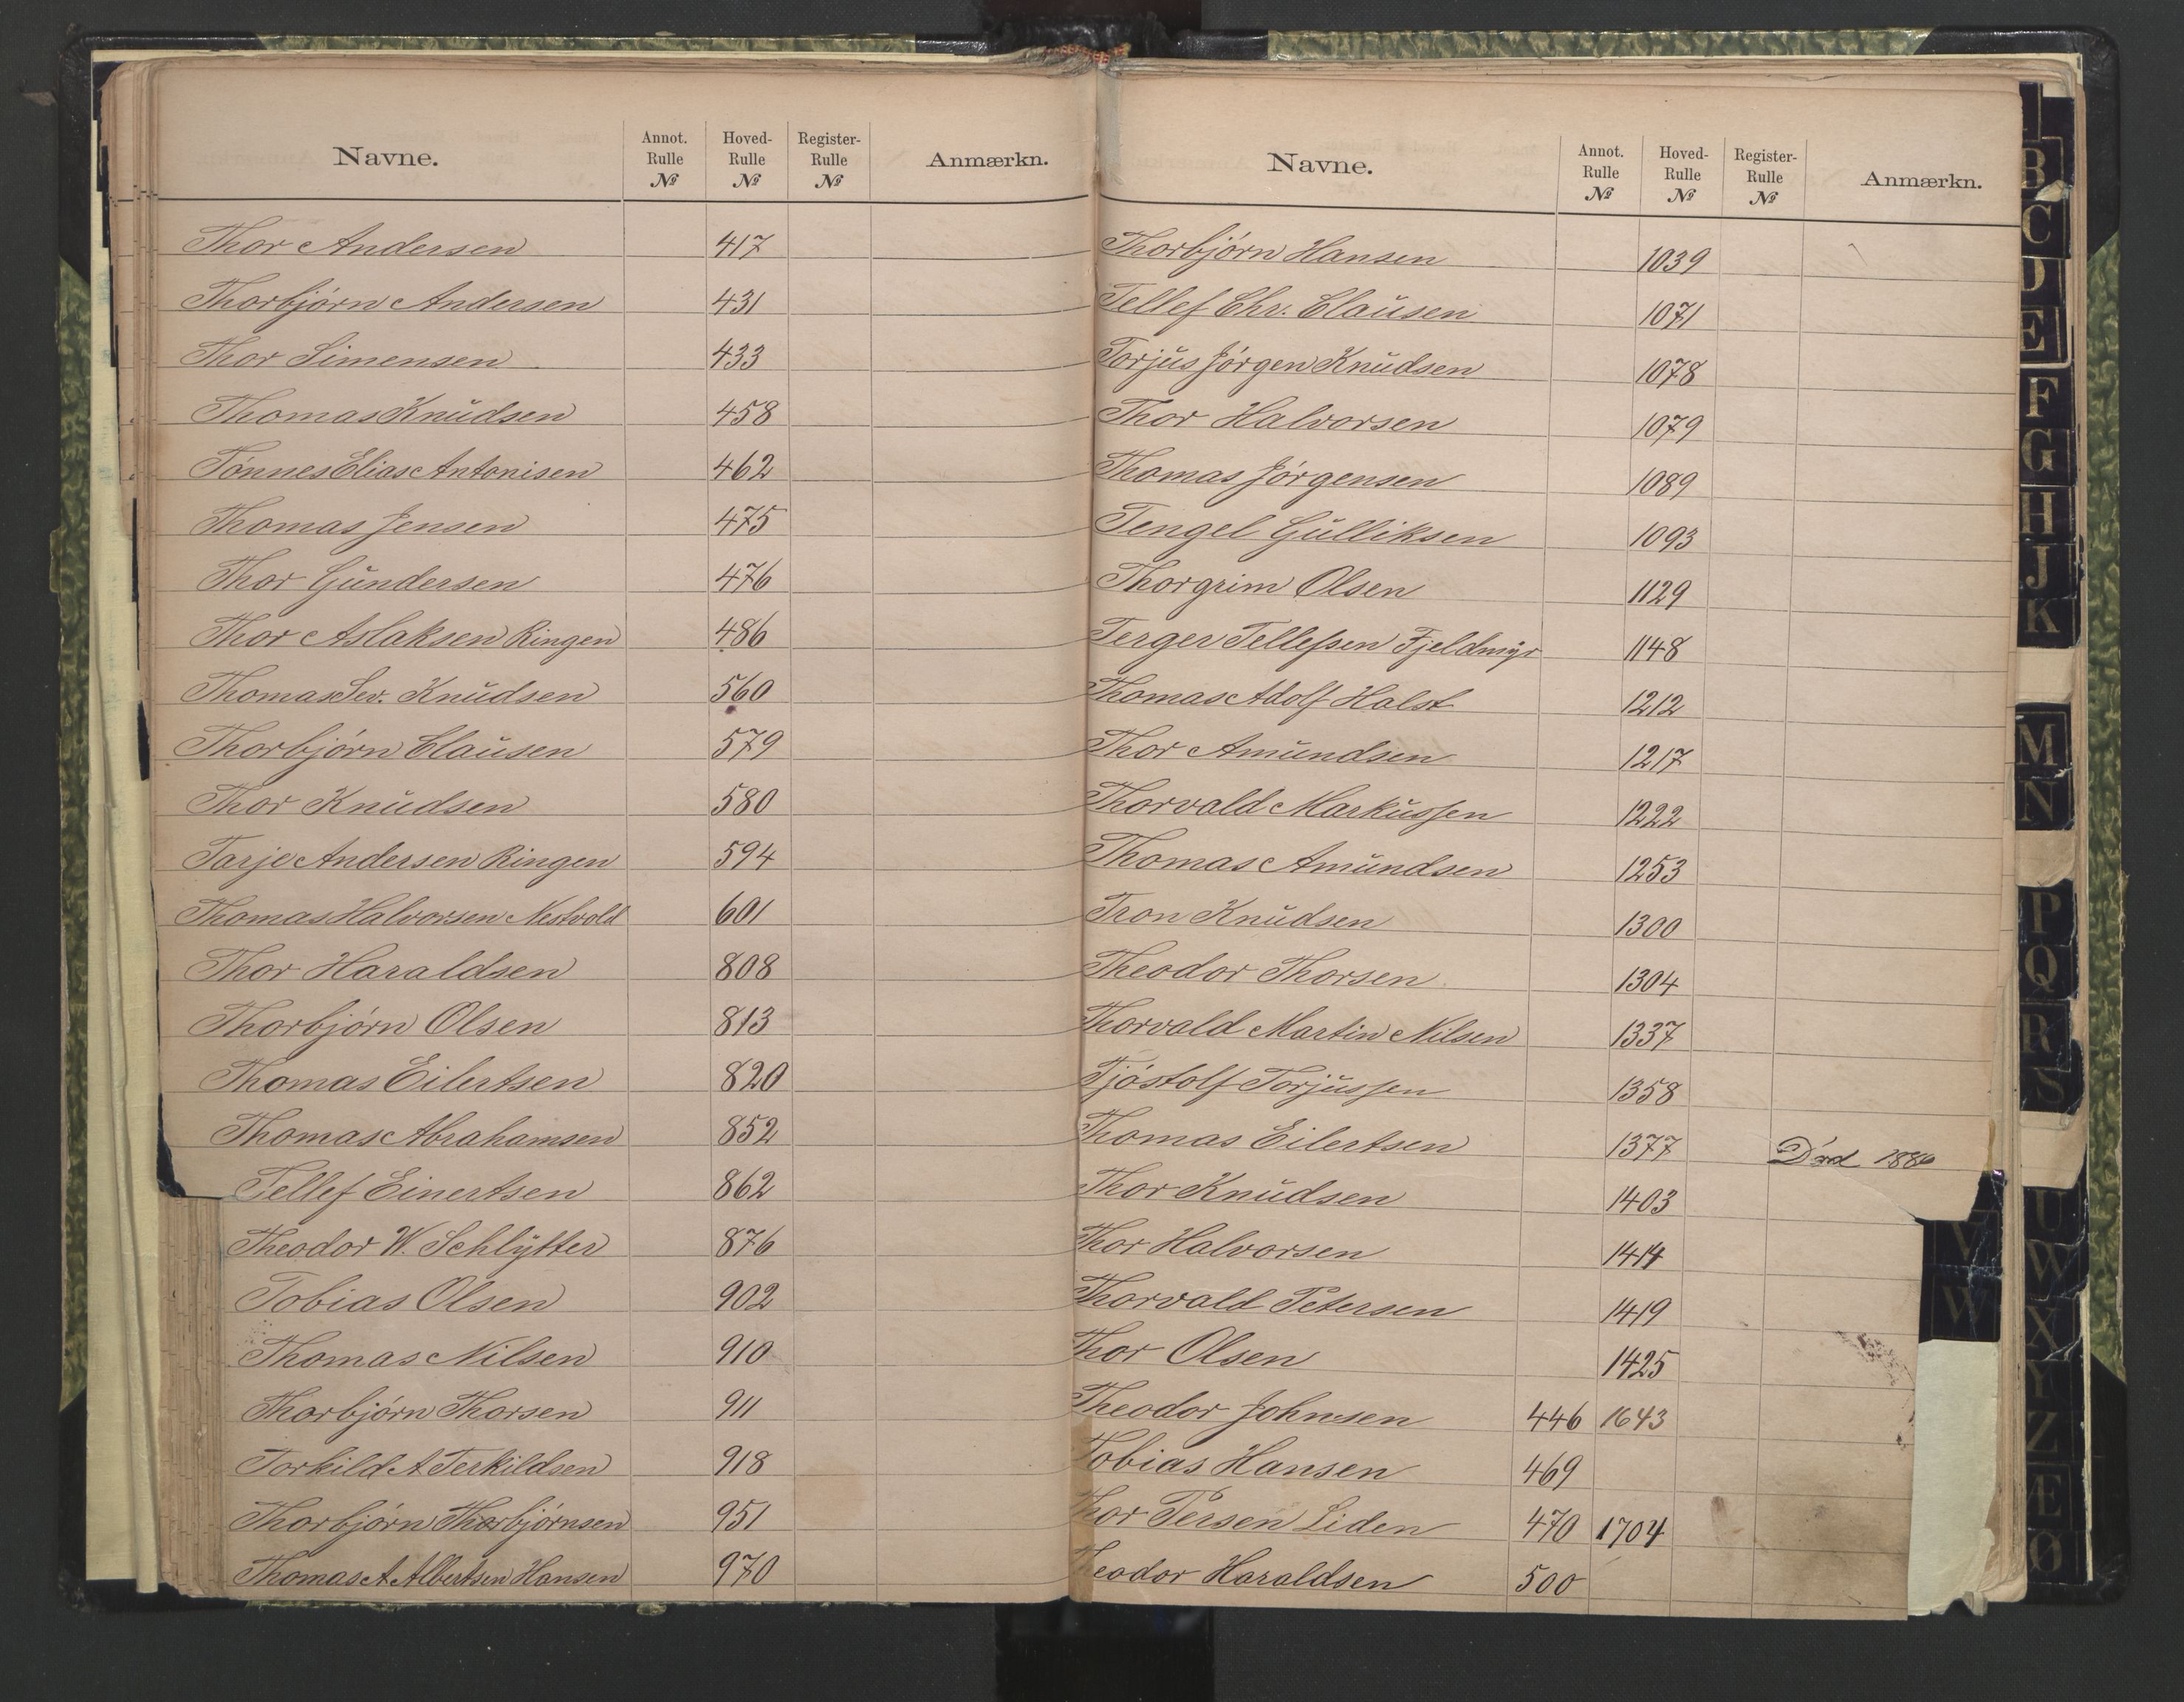 Navne. Annot. Rulle № Hoved-Rulle № Register-Rulle № Anmærkn.
Thor Andersen 417
Thorbjørn Andersen 431
Thor Simensen 433
Thomas Knudsen 458
Tønnes Elias Antonisen 462
Thomas Jensen 475
Thor Gundersen 476
Thor Aslaksen Ringen 486
Thomas Sev. Knudsen 560
Thorbjørn Clausen 579
Thor Knudsen 580
Tarje Andersen Ringen 594
Thomas Halvorsen Nestvold 601
Thor Haraldsen 808
Thorbjørn Olsen 813
Thomas Eilertsen 820
Thomas Abrahamsen 852
Tellef Einertsen 862
Theodor W. Schlytter 876
Tobias Olsen 902
Thomas Nilsen 910
Thorbjørn Thorsen 911
Torkild A Terkildsen 918
Thorbjørn Thorbjørnsen 951
Thomas A Albertsen Hansen 970
Navne. Annot. Rulle № Hoved-Rulle № Register-Rulle № Anmærkn.
Thorbjørn Hansen 1039
Tellef Chr. Clausen 1071
Torjus Jørgen Knudsen 1078
Thor Halvorsen 1079
Thomas Jørgensen 1089
Tengel Gulliksen 1093
Thorgrim Olsen 1129
Terger Tellefsen Fjeldmyr 1148
Thomas Adolf Holst 1212
Thor Amundsen 1217
Thorvald Markussen 1222
Thomas Amundsen 1253
Tron Knudsen 1300
Theodor Thorsen 1304
Thorvald Martin Nilsen 1337
Tjøstolf Torjussen 1358
Thomas Eilertsen 1377 Død 1886
Thor Knudsen 1403
Thor Halvorsen 1414
Thorvald Petersen 1419
Thor Olsen 1425
Theodor Johnsen 446 1643
Tobias Hansen 469
Thor Persen Liden 470 1704
Theodor Haraldsen 500
B
C
D
E
F
G
H
J
K
M
N
P
Q
R
S
U
V
W
W
X
Y
Z
Æ
Ø